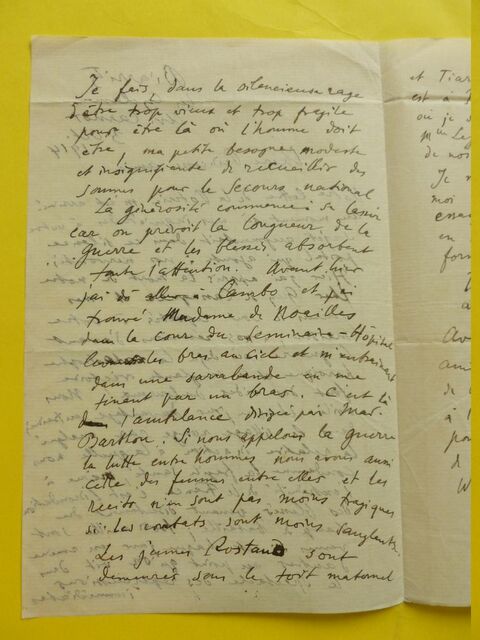 Je fais, dans la silencieuse rage
d'être trop vieux et trop fragile
pour être là où l'homme doit
être, ma petite besogne modeste
et insignifiante de recueillir des
sommes pour le Secours national
La générosité commence à se lasser
car on prévoit la longueur de la
guerre et les blessés absorbent
toute l'attention. Avant hier
j'ai dû aller à Cambo et j'ai
trouvé Madame de Noailles
dans la cour du Seminaire-Hôpital
les bras au ciel et m'entrainant
dans une sarrabande en me
tinent par un bras. C'est là
l'ambulance dirigée par Mad.
Barthou. Si nous appelons la guerre
la lutte entre hommes nous avons aussi
celle des femmes entre elles et les
recits n'en sont pas moins tragiques
si les combats sont moins sanglants.
Les jeunes Rostand sont
demeurés sous le toit maternel
et Tiar
est à
où je s
Mme Le
de nos
Je n
moi
essa
en
for
Av
am
de
à l
pou
de
W